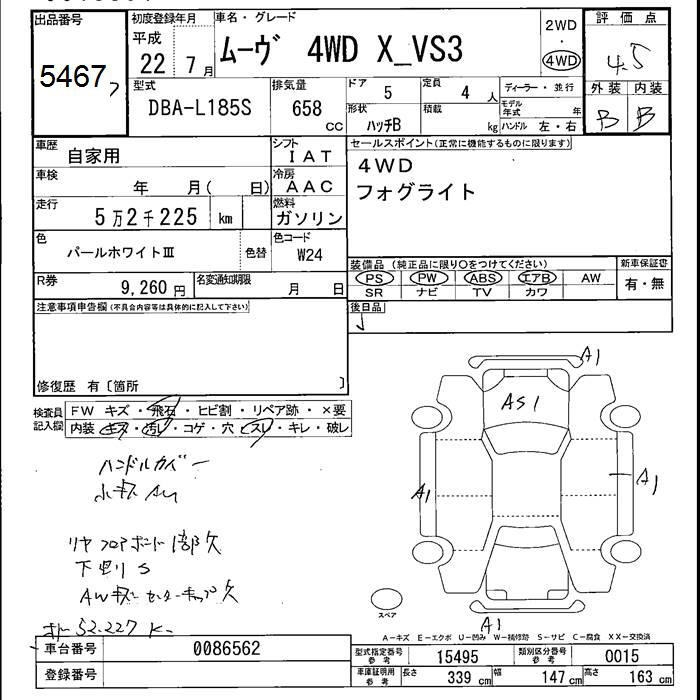 出品番号
5467
初度登録年月
平成
22 7月
車名・グレード
ムーヴ 4WD X_VS3
2WD
・
4WD
評価点
4.5
外装 内装
B B
型式
DBA-L185S
排気量
658
cc
ドア
5
定員
4 人
形状
ハッチB
積載
kg
ディーラー・並行
モデル年式 年
ハンドル 左・右
車歴
自家用
シフト
IAT
車検
年 月( 日)
冷房
AAC
走行
5万2千225 km
燃料
ガソリン
色
パールホワイトⅢ
色替
色コード
W24
R券
9,260円
名変通知期限
月 日
セールスポイント(正常に機能するものに限ります)
4WD
フォグライト
装備品(純正品に限り○をつけてください)
PS PW ABS エアB AW
SR ナビ TV カワ
新車保証書
有・無
後日品
注意事項申告欄(不具合内容等は具体的に記入して下さい)
修復歴 有〔箇所 〕
検査員記入欄
FW キズ・飛石・ヒビ割・リペア跡・×要
内装 キズ・汚レ・コゲ・穴・スレ・キレ・破レ
ハンドルカバー
小キズ AU
リヤフロアボード1部欠
下廻りS
AWキズ センターキャップ欠
52.227 K
A1
AS1
A1
A1
A1
スペア
A-キズ E-エクボ U-凹み W-補修跡 S-サビ C-腐食 XX-交換済
車台番号
0086562
登録番号
型式指定番号
参考
15495
類別区分番号
参考
0015
車庫証明用
参考
長さ 339 cm 幅 147 cm 高さ 163 cm